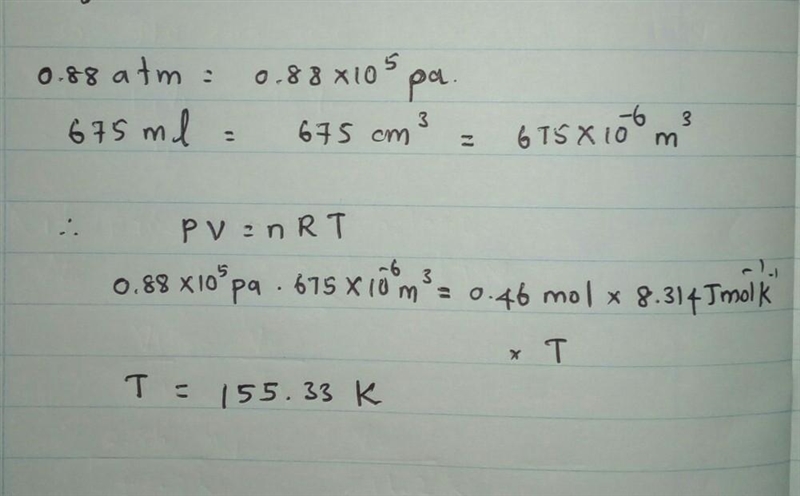 0.88 atm = 0.88 × 10⁵ pa.
675 ml = 675 cm³ = 675 × 10⁻⁶ m³
∴ PV = nRT
0.88 × 10⁵ pa · 675 × 10⁻⁶ m³ = 0.46 mol × 8.314 J mol⁻¹ k⁻¹
× T
T = 155.33 K